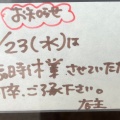 お知らせ
/23(水)は
臨時休業させていただ
何卒、ご了承下さい。
店主